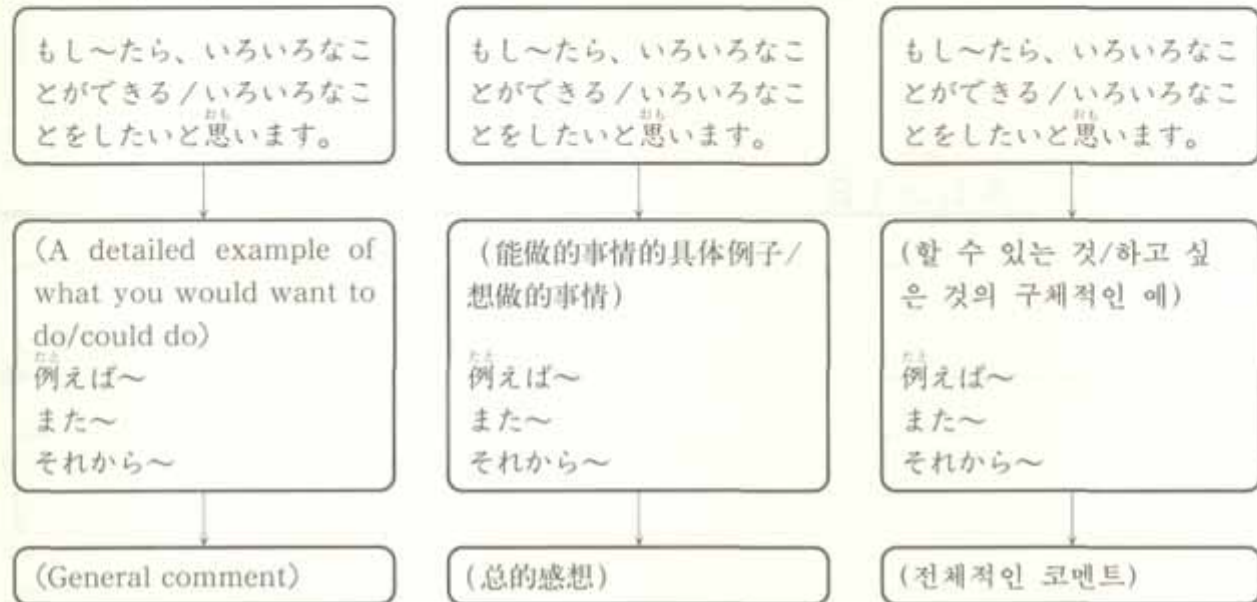 もし〜たら、いろいろなこ
とができる/いろいろなこ
とをしたいと思います。
おも
(A detailed example of
what you would want to
do/could do)
たと
例えば〜
また〜
それから〜
(General comment)
もし〜たら、いろいろなこ
とができる/いろいろなこ
とをしたいと思います。
おも
(能做的事情的具体例子/
想做的事情)
たと
例えば〜
また〜
それから〜
(总的感想)
もし〜たら、いろいろなこ
とができる/いろいろなこ
とをしたいと思います。
おも
(할 수 있는 것/하고 싶
은 것의 구체적인 예)
たと
例えば〜
また〜
それから〜
(전체적인 코멘트)